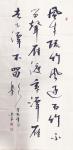 風来疏竹風過而竹不
留聲雁度寒潭雁
去而潭不留影